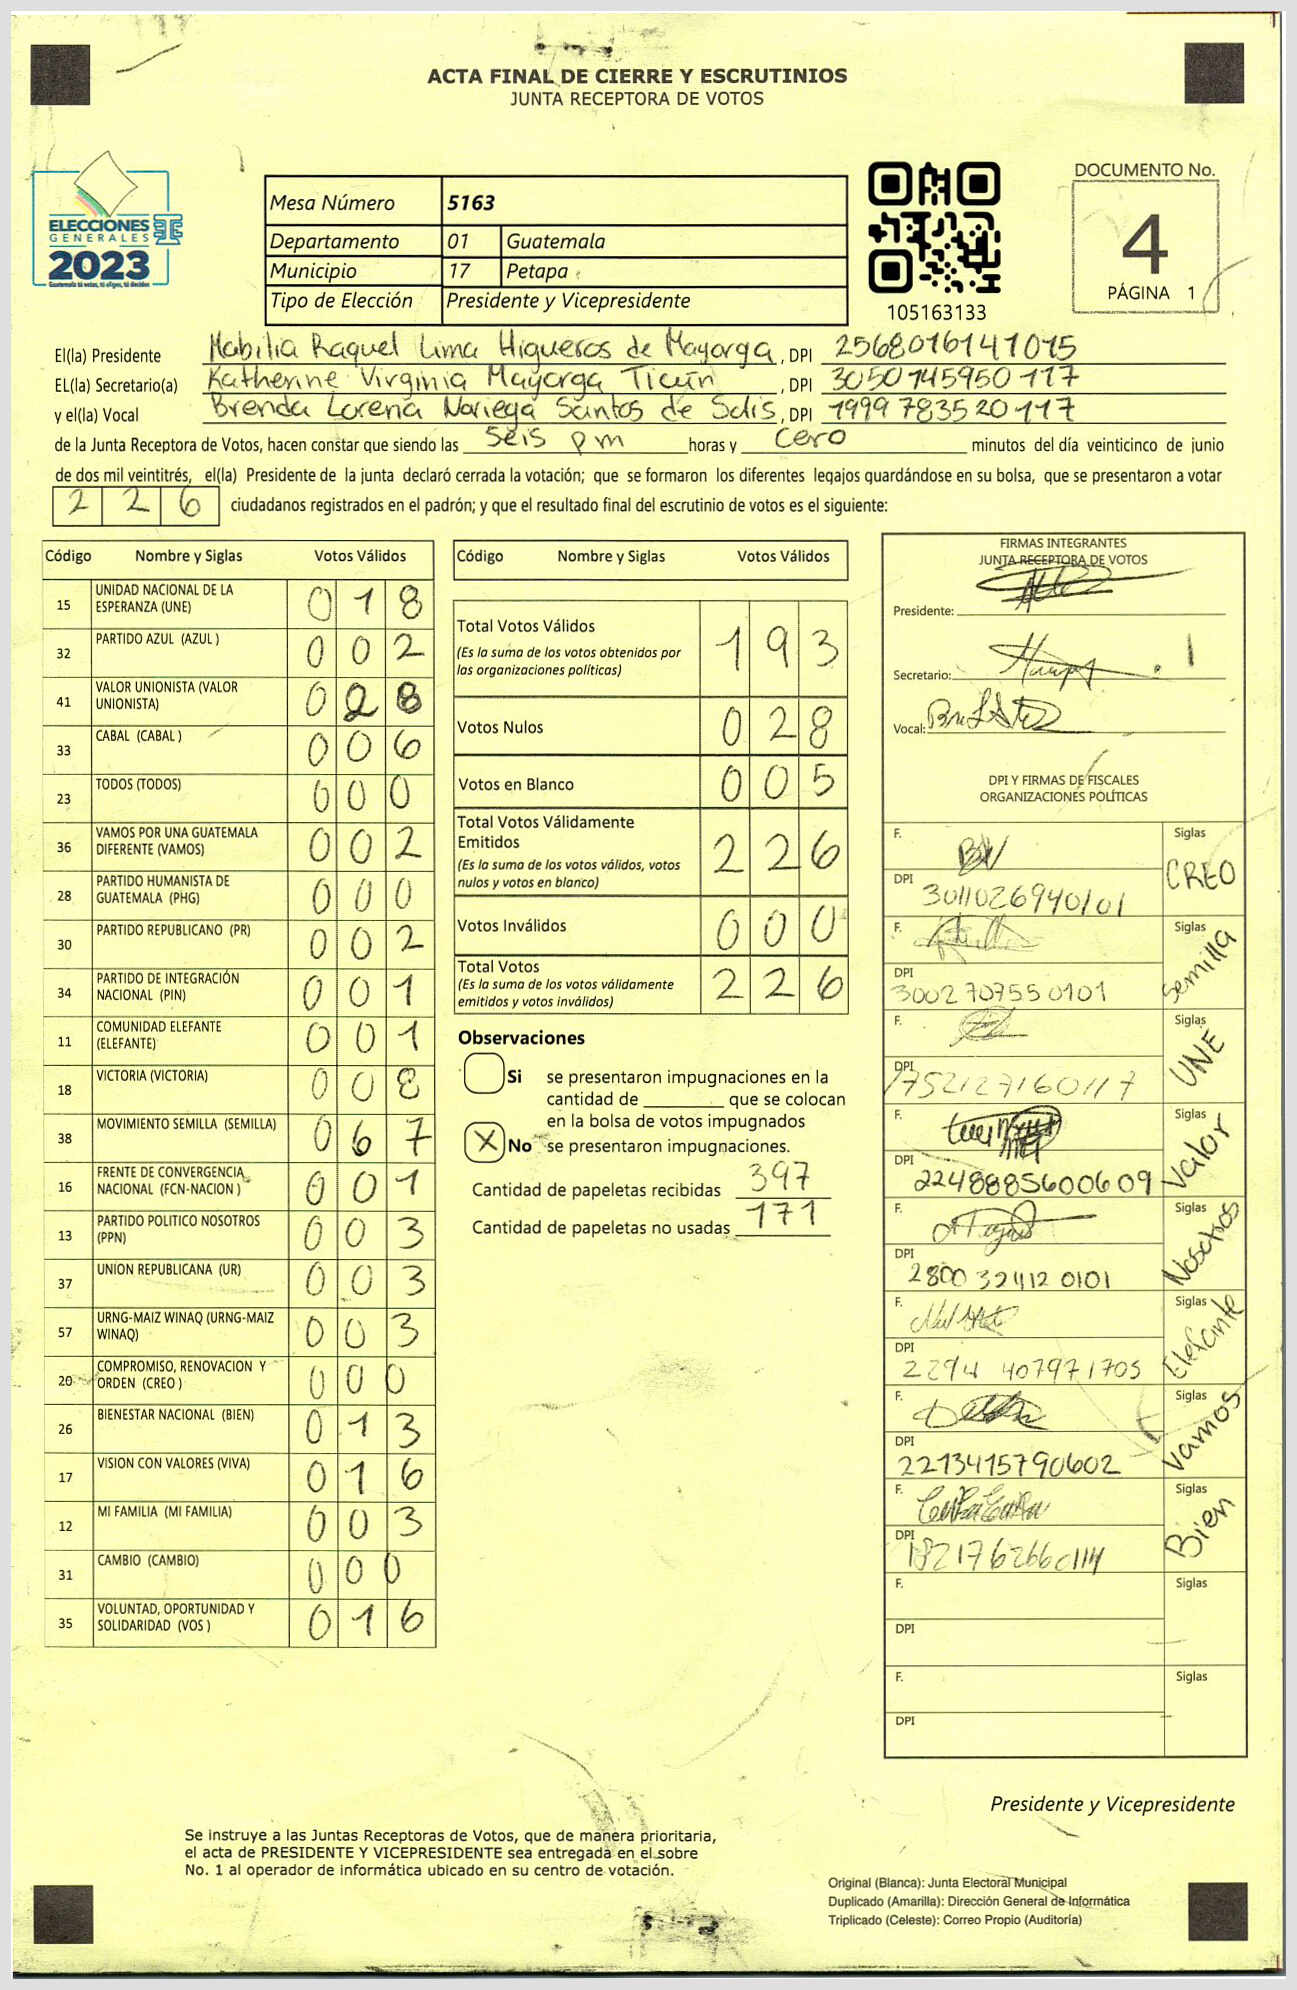 ACTA FINAL DE CIERRE Y ESCRUTINIOS
JUNTA RECEPTORA DE VOTOS
ELECCIONES
GENERALES
2023
Guatemala tú votas, tú eliges, tú decides
Mesa Número 5163
Departamento 01 Guatemala
Municipio 17 Petapa
Tipo de Elección Presidente y Vicepresidente
105163133
DOCUMENTO No.
4
PÁGINA 1
El(la) Presidente Mabilia Raquel Lima Higueros de Mayorga, DPI 2568016141015
EL(la) Secretario(a) Katherine Virginia Mayorga Ticún, DPI 3050745950117
y el(la) Vocal Brenda Lorena Noriega Santos de Solis, DPI 1999783520117
de la Junta Receptora de Votos, hacen constar que siendo las seis pm horas y cero minutos del día veinticinco de junio
de dos mil veintitrés, el(la) Presidente de la junta declaró cerrada la votación; que se formaron los diferentes legajos guardándose en su bolsa, que se presentaron a votar
226 ciudadanos registrados en el padrón; y que el resultado final del escrutinio de votos es el siguiente:
Código Nombre y Siglas Votos Válidos
15 UNIDAD NACIONAL DE LA ESPERANZA (UNE) 018
32 PARTIDO AZUL (AZUL ) 002
41 VALOR UNIONISTA (VALOR UNIONISTA) 028
33 CABAL (CABAL ) 006
23 TODOS (TODOS) 000
36 VAMOS POR UNA GUATEMALA DIFERENTE (VAMOS) 002
28 PARTIDO HUMANISTA DE GUATEMALA (PHG) 000
30 PARTIDO REPUBLICANO (PR) 002
34 PARTIDO DE INTEGRACIÓN NACIONAL (PIN) 001
11 COMUNIDAD ELEFANTE (ELEFANTE) 001
18 VICTORIA (VICTORIA) 008
38 MOVIMIENTO SEMILLA (SEMILLA) 067
16 FRENTE DE CONVERGENCIA NACIONAL (FCN-NACION ) 001
13 PARTIDO POLITICO NOSOTROS (PPN) 003
37 UNION REPUBLICANA (UR) 003
57 URNG-MAIZ WINAQ (URNG-MAIZ WINAQ) 003
20 COMPROMISO, RENOVACION Y ORDEN (CREO ) 000
26 BIENESTAR NACIONAL (BIEN) 013
17 VISION CON VALORES (VIVA) 016
12 MI FAMILIA (MI FAMILIA) 003
31 CAMBIO (CAMBIO) 000
35 VOLUNTAD, OPORTUNIDAD Y SOLIDARIDAD (VOS ) 016
Código Nombre y Siglas Votos Válidos
Total Votos Válidos 193
(Es la suma de los votos obtenidos por
las organizaciones políticas)
Votos Nulos 028
Votos en Blanco 005
Total Votos Válidamente
Emitidos 226
(Es la suma de los votos válidos, votos
nulos y votos en blanco)
Votos Inválidos 000
Total Votos 226
(Es la suma de los votos válidamente
emitidos y votos inválidos)
Observaciones
Si se presentaron impugnaciones en la
cantidad de ________ que se colocan
en la bolsa de votos impugnados
X No se presentaron impugnaciones.
Cantidad de papeletas recibidas 397
Cantidad de papeletas no usadas 171
FIRMAS INTEGRANTES
JUNTA RECEPTORA DE VOTOS
Presidente:
Secretario:
Vocal:
DPI Y FIRMAS DE FISCALES
ORGANIZACIONES POLÍTICAS
F. Siglas
DPI 3011026940101 CREO
F. Siglas
DPI 3002707550101 Semilla
F. Siglas
DPI 1752127160117 UNE
F. Siglas
DPI 2248885600609 Valor
F. Siglas
DPI 2800 32412 0101 Nosotros
F. Siglas
DPI 2294 407971705 Elefante
F. Siglas
DPI 2213415790602 Vamos
F. Siglas
DPI 1821762660114 Bien
F. Siglas
DPI
F. Siglas
DPI
Presidente y Vicepresidente
Se instruye a las Juntas Receptoras de Votos, que de manera prioritaria,
el acta de PRESIDENTE Y VICEPRESIDENTE sea entregada en el sobre
No. 1 al operador de informática ubicado en su centro de votación.
Original (Blanca): Junta Electoral Municipal
Duplicado (Amarilla): Dirección General de Informática
Triplicado (Celeste): Correo Propio (Auditoría)